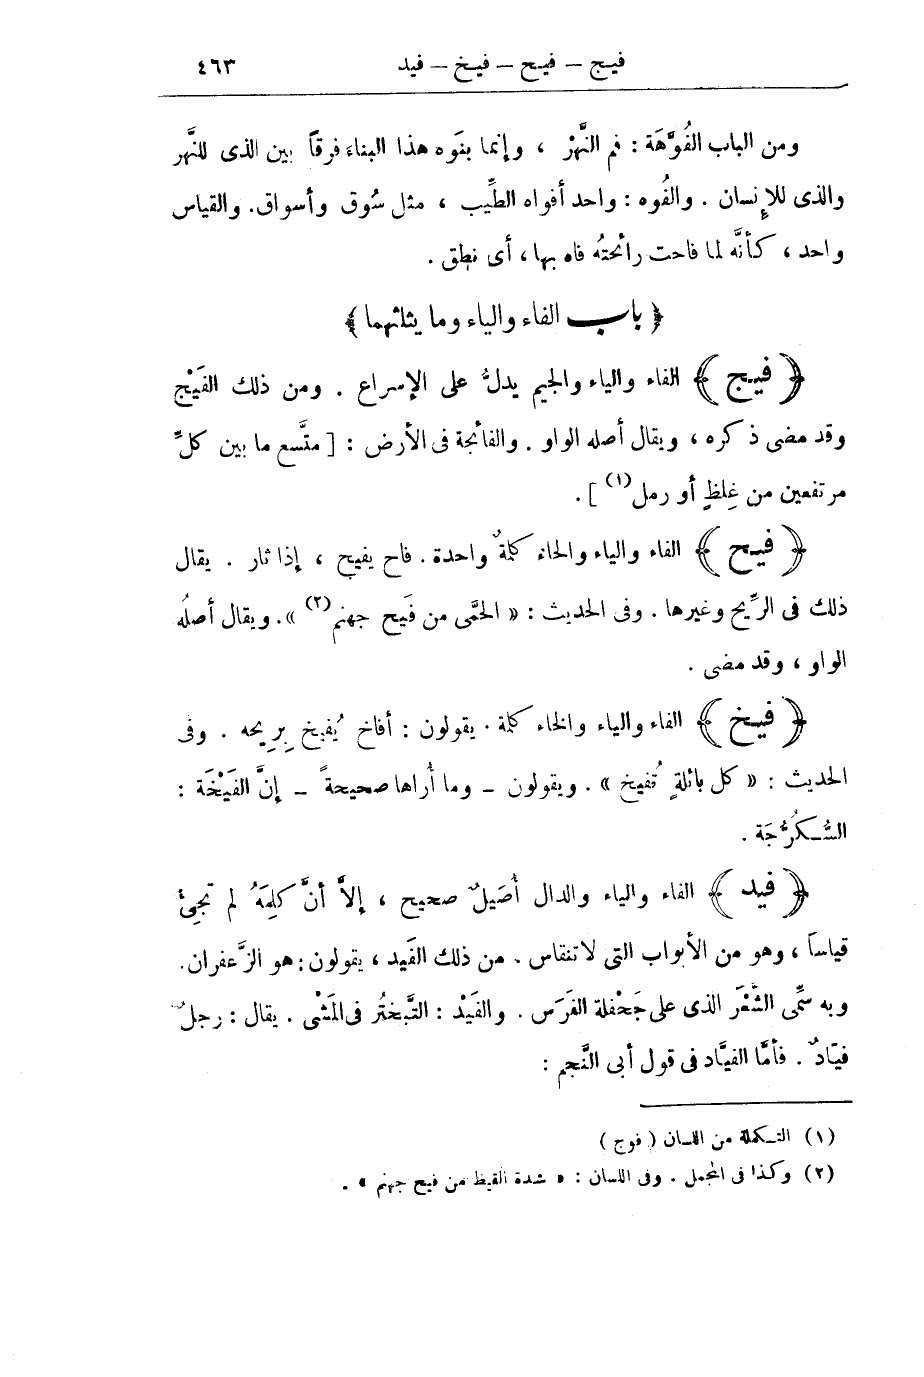 فيج – فيح – فيخ – فيد ٤٦٣
ومن الباب الفُوَّهَة : فم النَّهْر ، وإنما بنَوه هذا البناءَ فرقاً بين الذى للنَّهر
والذى للإِنسان . والفُوه : واحد أفواه الطِّيب ، مثل سُوق وأسواق. والقياس
واحد ، كأنَّه لما فاحت رائحتُه فاه بها ، أى نطق .
﴿ باب الفاء والياء وما يثلثهما ﴾
﴿ فيج ﴾ الفاء والياء والجيم يدلُّ على الإسراع . ومن ذلك الفَيْج
وقد مضى ذكره ، ويقال أصله الواو . والفائجة فى الأرض : [ متَّسع ما بين كلِّ
مرتفعين من غِلظٍ أو رمل(١) ] .
﴿ فيح ﴾ الفاء والياء والحاء كلمةٌ واحدة . فاح يفيح ، إذا ثار . يقال
ذلك فى الرِّيح وغيرها . وفى الحديث : « الحمَّى من فَيح جهنم(٢) » . ويقال أصلُه
الواو ، وقد مضى .
﴿ فيخ ﴾ الفاء والياء والخاء كلمة . يقولون : أفاخ يُفيخ بِرِيحه . وفى
الحديث : « كل بائلةٍ تُفيخ » . ويقولون – وما أُراها صحيحةً – إنَّ الفَيْخَة :
السُّكُرُّجَة .
﴿ فيد ﴾ الفاء والياء والدال أُصَيلٌ صحيح ، إلاَّ أنَّ كلِمَهُ لم تجئْ
قياساً ، وهو من الأبواب التى لا تنقاس . من ذلك الفَيد ، يقولون : هو الزَّعفران.
وبه سمِّى الشَّعَر الذى على جَحْفلة الفَرَس . والفَيْد : التَّبختُر فى المَشْى . يقال : رجلٌ
فيّادٌ . فأمَّا الفيَّاد فى قول أبى النَّجم :
(١) التكملة من اللسان ( فوج )
(٢) وكذا فى المجمل . وفى اللسان : « شدة القيظ من فيح جهنم » .